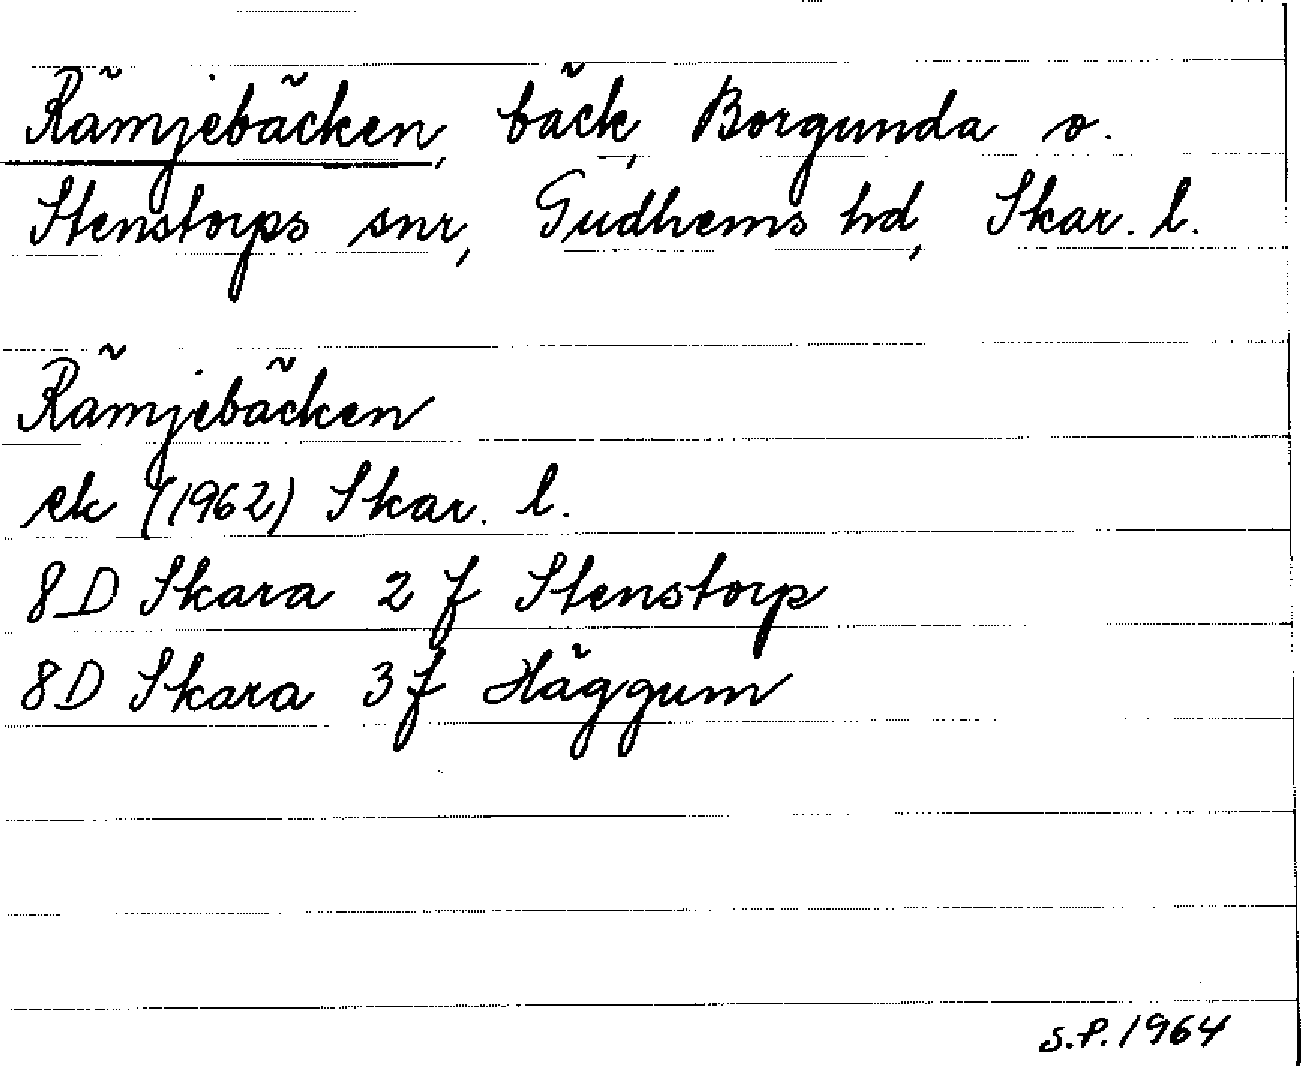 Rämjebäcken, bäck, Borgunda o.
Stenstorps snr, Gudhems hd, Skar. l.
Rämjebäcken
ek (1962) Skar. l.
8D Skara 2 f Stenstorp
8D Skara 3 f Häggum
S.P. 1964